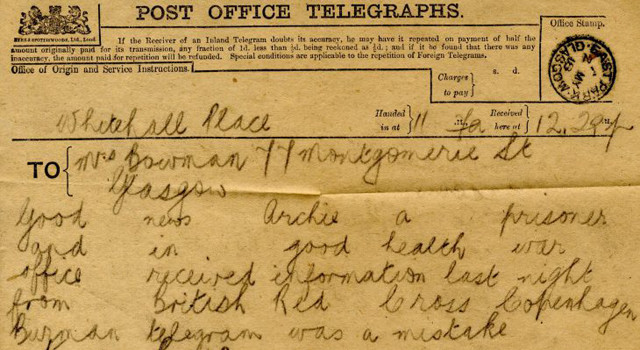 POST OFFICE TELEGRAPHS.
If the Receiver of an Inland Telegram doubts its accuracy, he may have it repeated on payment of half the
amount originally paid for its transmission, any fraction of 1d. less than ½d. being reckoned as ½d.; and if it be found that there was any
inaccuracy, the amount paid for repetition will be refunded. Special conditions are applicable to the repetition of Foreign Telegrams.
Office of Origin and Service Instructions.
Charges to pay
s. d.
Office Stamp.
EAST PARK. GLASGOW
Whitehall Place
Handed in at 11
Received here at 12.29
TO
Mrs Bowman 77 Montgomerie St
Glasgow
Good news Archie a prisoner
and in good health war
office received information last night
from British Red Cross Copenhagen
telegram was a mistake